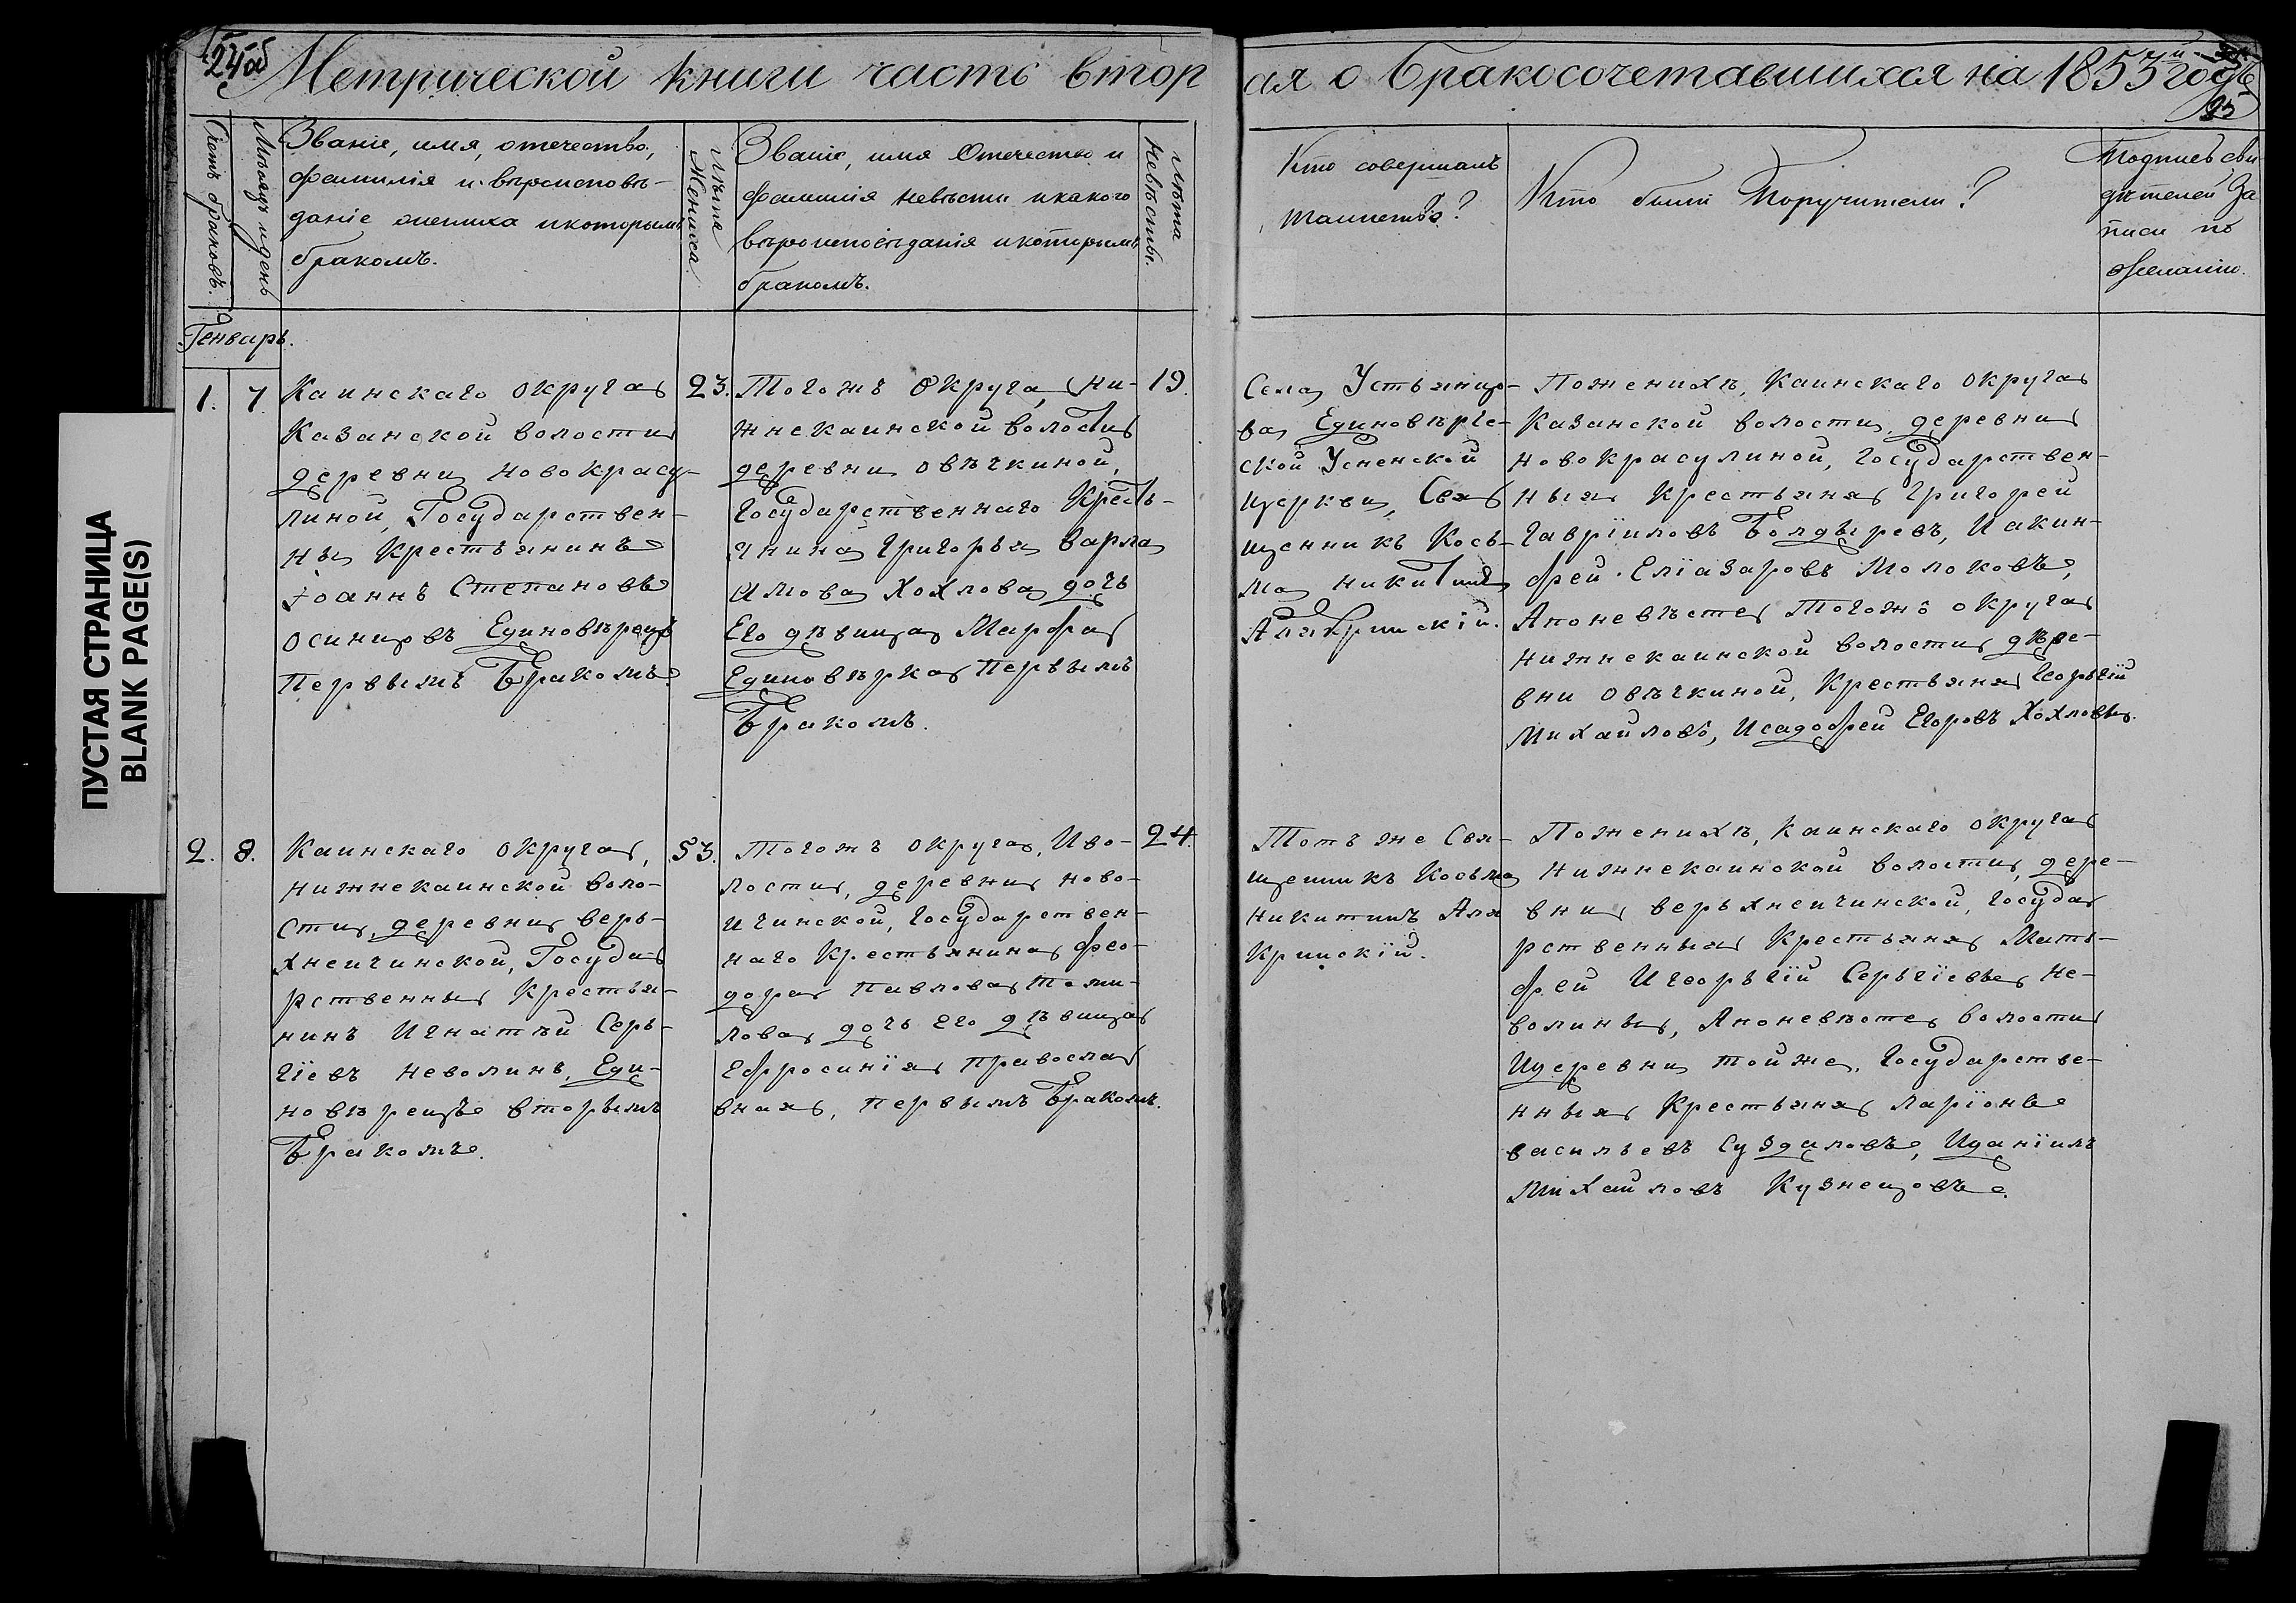 24об
Метрической книги часть вторая о бракосочетавшихся на 1855й годъ
25
ПУСТАЯ СТРАНИЦА
BLANK PAGE(S)
Счетъ браковъ.
Мѣсяцъ и день
Званіе, имя, отечество,
фамилія и вѣроисповѣ-
даніе жениха и которымъ
бракомъ.
Лѣта Жениха.
Званіе, имя Отечество и
фамилія невѣсты и какого
вѣроисповѣданія и которымъ
бракомъ.
Лѣта невѣсты.
Кто совершалъ
таинство?
Кто были Поручители?
Подпись сви
дѣтелей За
писи по
желанію.
Генварь.
1.
7.
Каинскаго округа
Казанской волости
деревни Новокрасу-
линой, Государствен-
ны Крестьянинъ
Іоаннъ Степановъ
Осинцовъ Единовѣрецъ
Первымъ Бракомъ.
23.
Тогожъ Округа, Ни-
жнекаинской волости
деревни Овѣчкиной,
Государственнаго Кресть-
янина Григорья Варла
амова Хохлова дочь
Его дѣвица Марфа
Единовѣрка Первымъ
Бракомъ.
19.
Села Устьянцо-
ва Единовѣрче-
ской Успенской
Церкви, Свя
щенникъ Кось-
ма Никитинъ
Алякринскій.
Поженихѣ, Каинскаго округа
Казанской волости, деревни
Новокрасулиной, Государствен-
ныя Крестьяня Григорей
Гавріиловъ Болдыревъ, Иакин-
фей Еліазаровъ Молоковъ,
Апоневѣсте Тогожъ округа
Нижнекаинской волости дере-
вни Овѣчкиной, Крестьяня Георьгій
Михаиловъ, Исадофей Егоровъ Хохловы.
2.
8.
Каинскаго округа,
Нижнекаинской воло-
сти, деревни Верь-
хнеичинской, Госуда
рственны Крестья-
нинъ Игнатѣй Серь-
гіевъ Неволинъ, Еди-
новѣрецъ вторымъ
Бракомъ.
53.
Тогожъ округа, Иво-
лости, деревни Ново-
ичинской, Государствен-
наго Крестьянина Фео-
дора Павлова Томи-
лова дочь Его дѣвица
Ефросинія Правосла
вная, Первымъ Бракомъ.
24.
Тотъ же Свя-
щенникъ Косьма
Никитинъ Аля
Кринскій.
Поженихѣ, Каинскаго округа
Нижнекаинской волости, дере-
вни Верьхнеичинской, Госуда
рственныя Крестьяня Мать-
фей Игеорьгій Серьгіевы Не-
волины, Апоневѣсте волости
Идеревни тойже, Государстве-
нныя Крестьяня Ларіонъ
Васильевъ Суздаловъ, Иданіилъ
Михаиловъ Кузнецовъ.